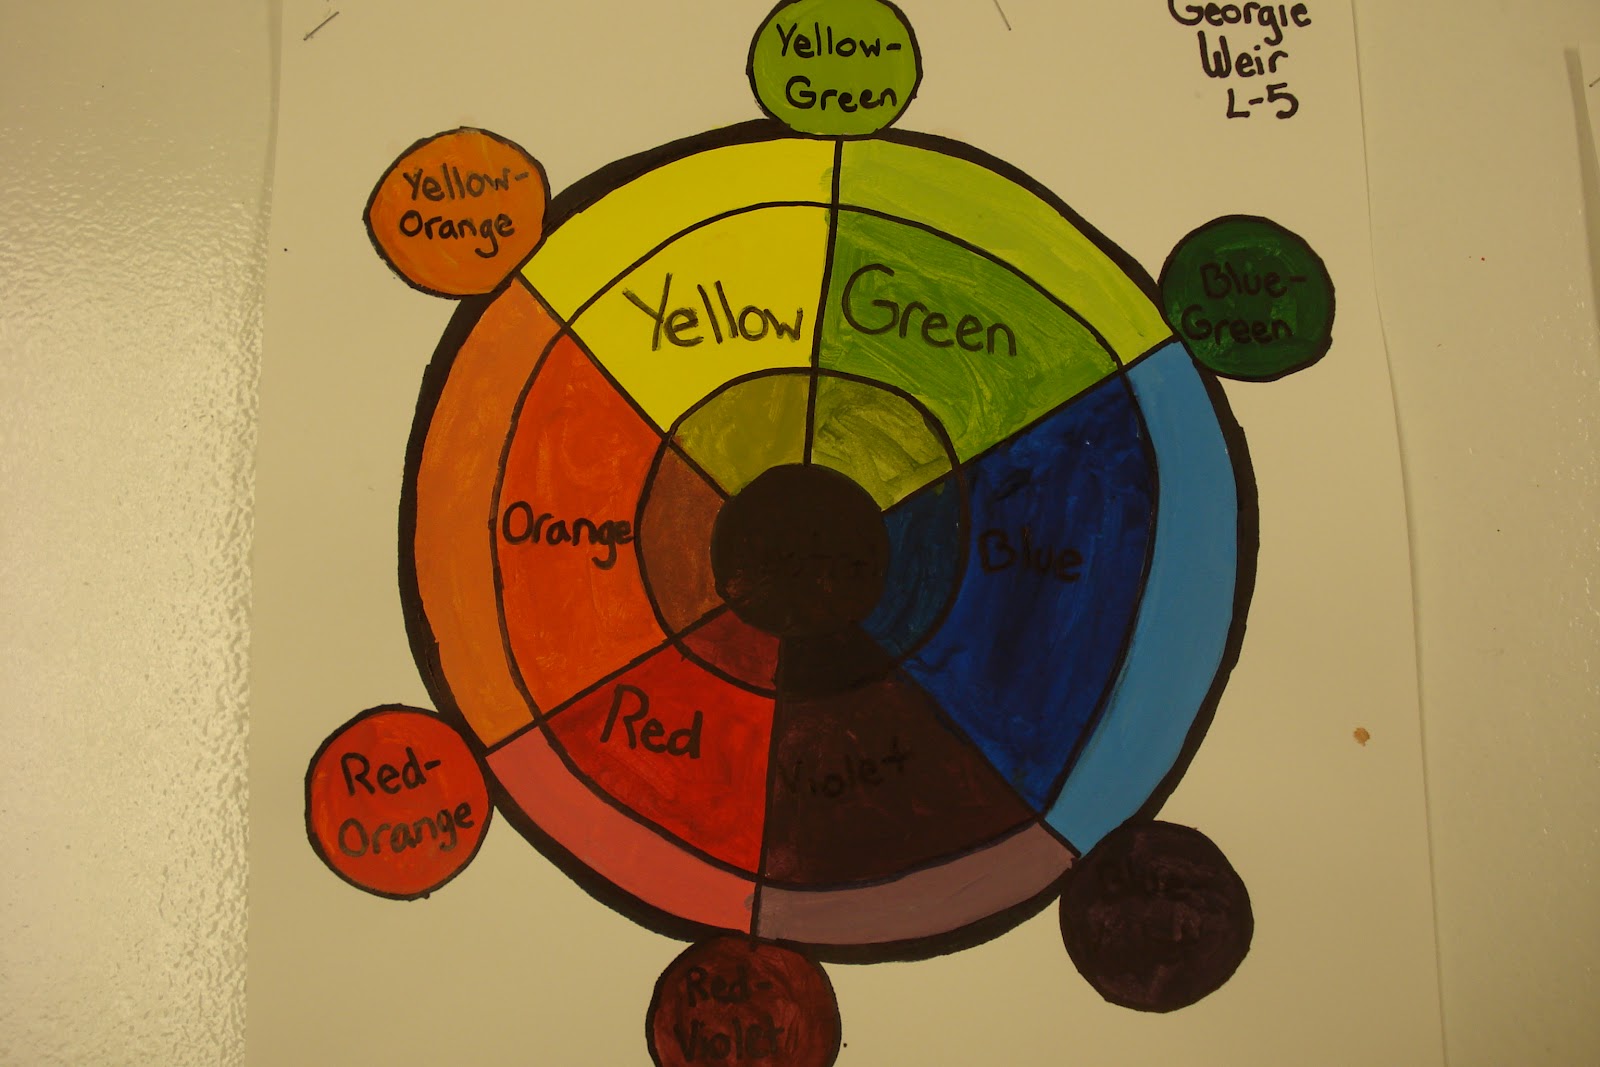 Georgie
Weir
L-5
Yellow-
Green
Yellow-
Orange
Blue-
Green
Yellow
Green
Orange
Blue
Red
Violet
Red-
Orange
Blue-
Red-
Violet